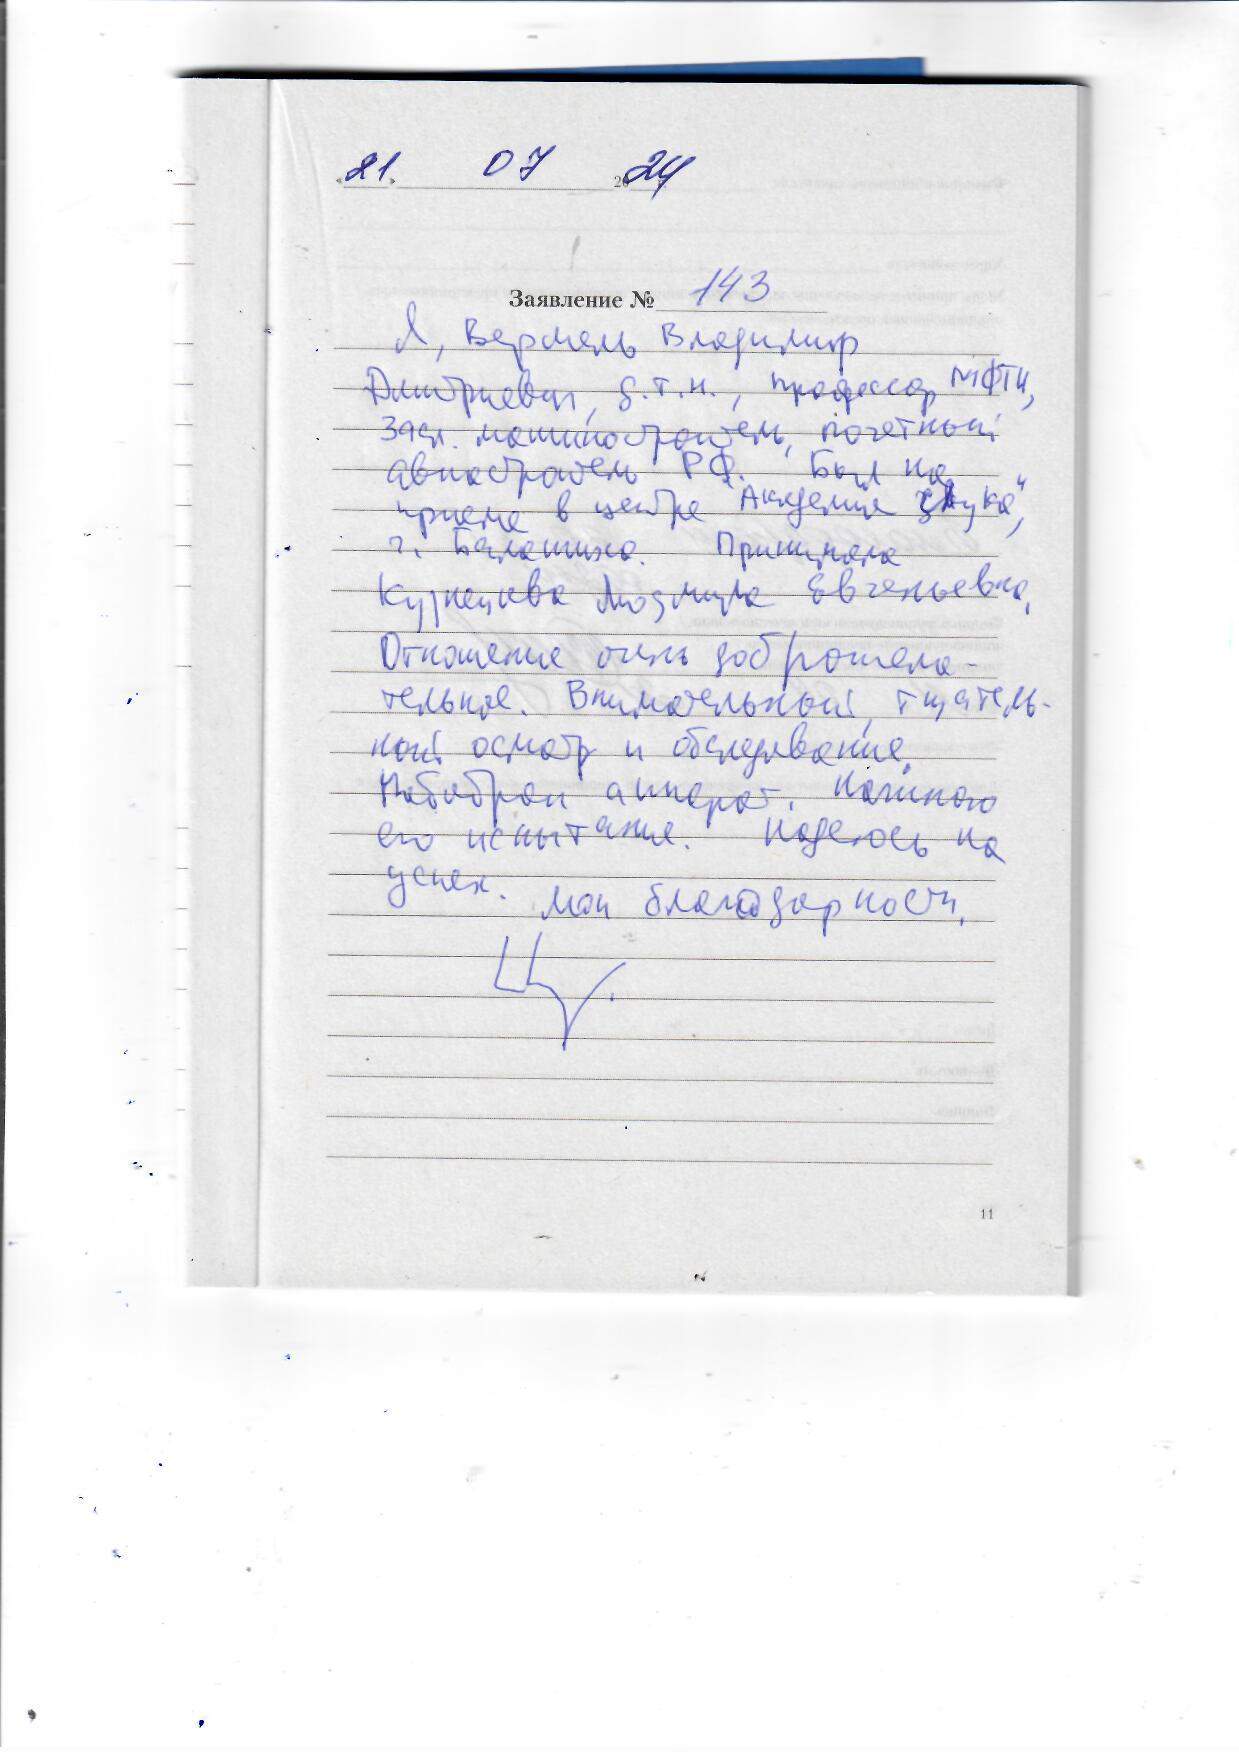 «21» 07 2024
Заявление № 143
Я, Вермель Владимир
Дмитриевич, д.т.н., профессор МФТИ,
Засл. машиностроитель, почетный
авиастроитель РФ. Был на
приеме в центре "Академия звука",
г. Балашиха. Принимала
Кузнецова Людмила Евгеньевна.
Отношение очень доброжела-
тельное. Внимательный, тщатель-
ный осмотр и обследование.
аппарат. Начинаю
его испытания. Надеюсь на
успех. Мои благодарности.
11